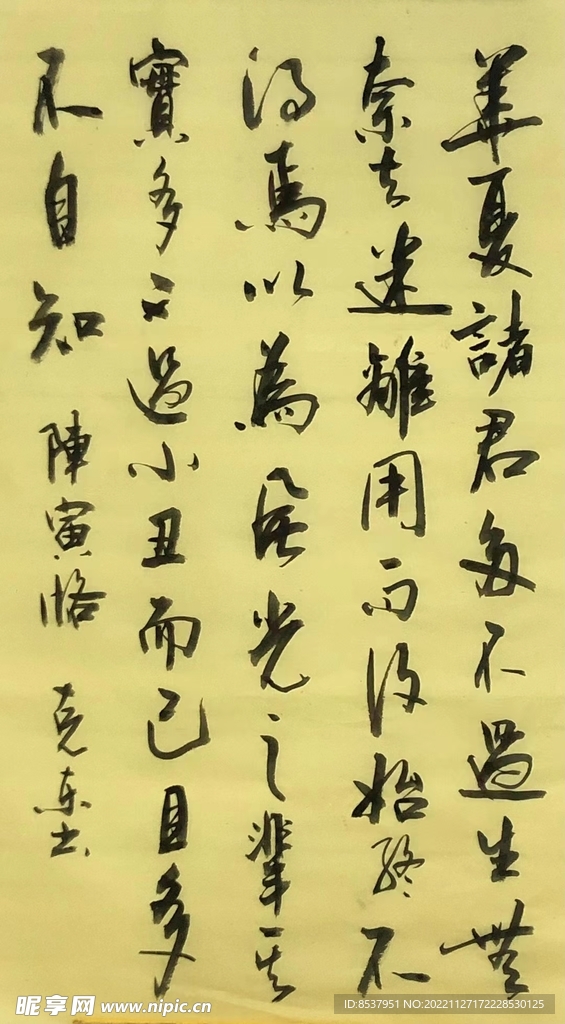 華夏諸君多不過生無
奈去迷離用而後始終不
得焉以為風光之輩其
實多不過小丑而已且多
不自知 陳寅恪 克東书
昵享网 www.nipic.cn
ID:8537951 NO:20221127172228530125